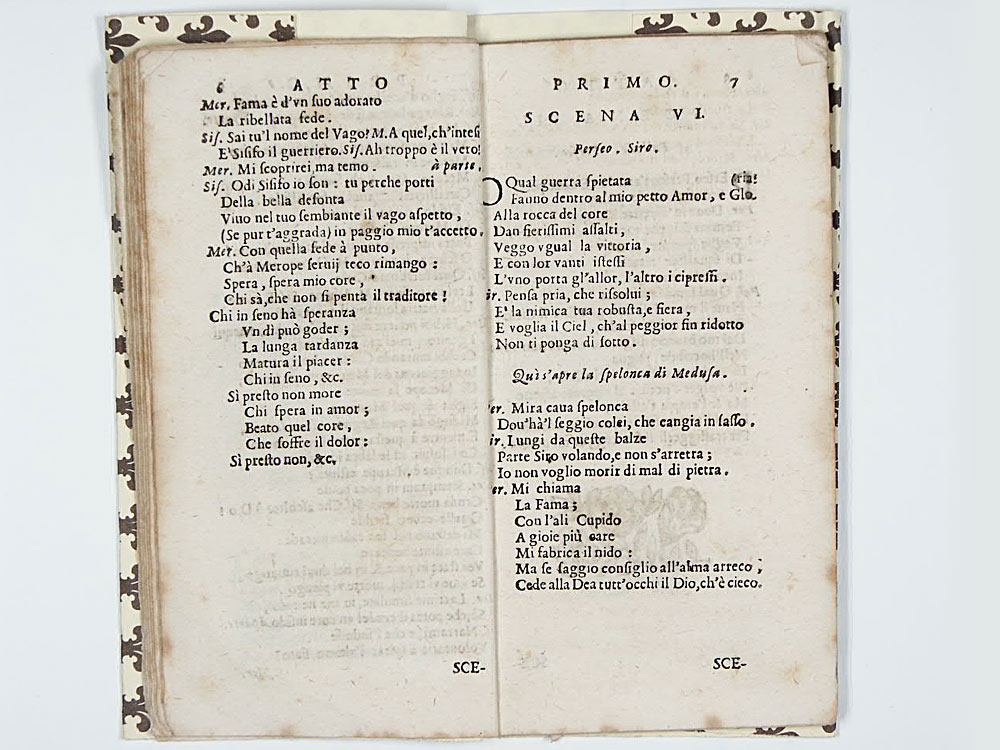 6 ATTO
Mer. Fama è d'vn suo adorato
La ribellata fede.
Sis. Sai tu'l nome del Vago? M. A quel, ch'intesi
E' Sisifo il guerriero. Sis. Ah troppo è il vero!
Mer. Mi scoprirei, ma temo. à parte.
Sis. Odi Sisifo io son: tu perche porti
Della bella defonta
Viuo nel tuo sembiante il vago aspetto,
(Se pur t'aggrada) in paggio mio t'accetto.
Mer. Con quella fede à punto,
Ch'à Merope seruij teco rimango:
Spera, spera mio core,
Chi sà, che non si penta il traditore!
Chi in seno hà speranza
Vn dì può goder;
La lunga tardanza
Matura il piacer:
Chi in seno, &c.
Sì presto non more
Chi spera in amor;
Beato quel core,
Che soffre il dolor:
Sì presto non, &c.
SCE-
PRIMO. 7
SCENA VI.
Perseo. Siro.
O Qual guerra spietata
Fanno dentro al mio petto Amor, e Glo-
ria!
Alla rocca del core
Dan fierissimi assalti,
Veggo vgual la vittoria,
E con lor vanti istessi
L'vno porta gl'allor, l'altro i cipressi.
ir. Pensa pria, che rissolui;
E' la nimica tua robusta, e fiera,
E voglia il Ciel, ch'al peggior fin ridotto
Non ti ponga di sotto.
Quì s'apre la spelonca di Medusa.
er. Mira caua spelonca
Dou'hà'l seggio colei, che cangia in sasso.
ir. Lungi da queste balze
Parte Siro volando, e non s'arretra;
Io non voglio morir di mal di pietra.
er. Mi chiama
La Fama;
Con l'ali Cupido
A gioie più care
Mi fabrica il nido:
Ma se saggio consiglio all'alma arreco,
Cede alla Dea tutt'occhi il Dio, ch'è cieco.
SCE-